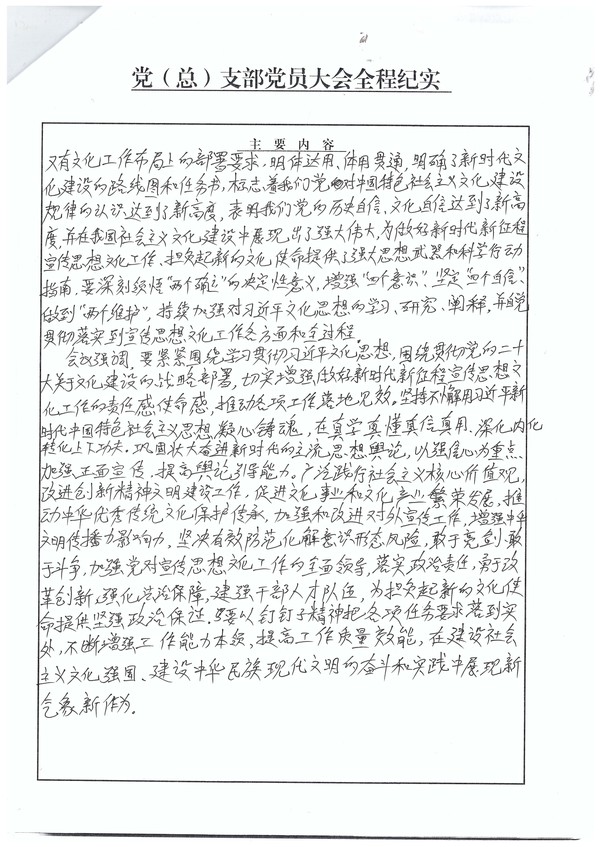 党（总）支部党员大会全程纪实
主要内容
又有文化工作布局上的部署要求，明体达用、体用贯通，明确了新时代文
化建设的路线图和任务书，标志着我们党对中国特色社会主义文化建设
规律的认识达到了新高度，表明我们党的历史自信、文化自信达到了新高
度，并在我国社会主义文化建设中展现出了强大伟大，为做好新时代新征程
宣传思想文化工作、担负起新的文化使命提供了强大思想武器和科学行动
指南。要深刻领悟“两个确立”的决定性意义，增强“四个意识”、坚定“四个自信”、
做到“两个维护”，持续加强对习近平文化思想的学习、研究、阐释，并自觉
贯彻落实到宣传思想文化工作各方面和全过程。
会议强调，要紧紧围绕学习贯彻习近平文化思想，围绕贯彻党的二十
大关于文化建设的战略部署，切实增强做好新时代新征程宣传思想文
化工作的责任感使命感，推动各项工作落地见效。坚持不懈用习近平新
时代中国特色社会主义思想凝心铸魂，在真学真懂真信真用、深化内化
转化上下功夫。巩固壮大奋进新时代的主流思想舆论，以强信心为重点
加强正面宣传，提高舆论引导能力。广泛践行社会主义核心价值观，
改进创新精神文明建设工作，促进文化事业和文化产业繁荣发展，推
动中华优秀传统文化保护传承，加强和改进对外宣传工作，增强中华
文明传播力影响力，坚决有效防范化解意识形态风险，敢于亮剑、敢
于斗争，加强党对宣传思想文化工作的全面领导，落实政治责任，勇于改
革创新，强化法治保障，建强干部人才队伍，为担负起新的文化使
命提供坚强政治保证。要以钉钉子精神把各项任务要求落到实
处，不断增强工作能力本领，提高工作质量效能，在建设社会
主义文化强国、建设中华民族现代文明的奋斗和实践中展现新
气象新作为。